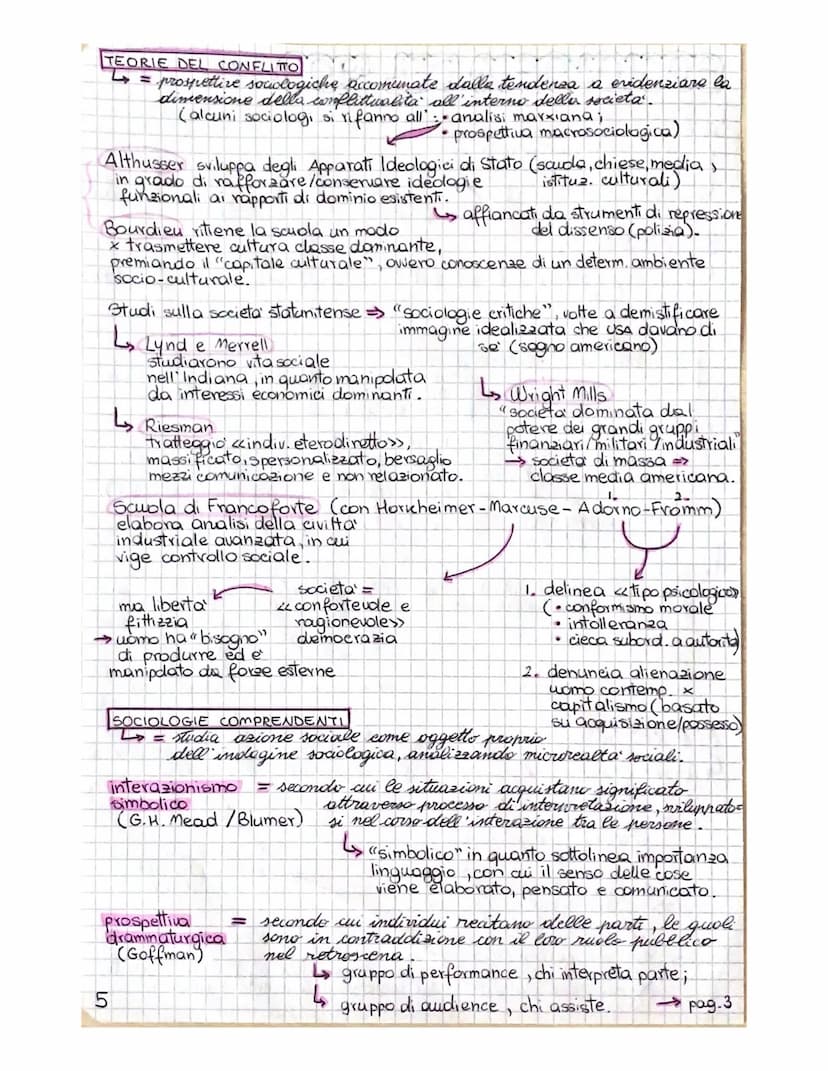 TEORIE DEL CONFLITTO
↳ = prospettive sociologiche accomunate dalla tendenza a evidenziare la
dimensione della conflittualità all'interno della società.
(alcuni sociologi si rifanno all': • analisi marxiana;
• prospettiva macrosociologica)
Althusser sviluppa degli Apparati Ideologici di Stato (scuola, chiese, media,
in grado di rafforzare/conservare ideologie istituz. culturali)
funzionali ai rapporti di dominio esistenti.
↳ affiancati da strumenti di repressione
Bourdieu ritiene la scuola un modo del dissenso (polizia).
x trasmettere cultura classe dominante,
premiando il "capitale culturale", ovvero conoscenze di un determ. ambiente
socio-culturale.
Studi sulla società statunitense ⇒ "sociologie critiche", volte a demistificare
immagine idealizzata che USA davano di
sé (sogno americano)
↳ Lynd e Merrell
studiarono vita sociale
nell'Indiana, in quanto manipolata
da interessi economici dominanti.
↳ Riesman
tratteggiò «indiv. eterodiretto»,
massificato, spersonalizzato, bersaglio
mezzi comunicazione e non relazionato.
↳ Wright Mills
"società dominata dal
potere dei grandi gruppi
finanziari/militari/industriali"
→ società di massa ⇒
classe media americana.
1. 2.
Scuola di Francoforte (con Horkheimer-Marcuse-Adorno-Fromm)
elabora analisi della civiltà
industriale avanzata, in cui
vige controllo sociale.
società =
«confortevole e
ragionevole»
democrazia
ma libertà
fittizia
→ uomo ha "bisogno"
di produrre ed è
manipolato da forze esterne
1. delinea «tipo psicologico»
(• conformismo morale
• intolleranza
• cieca subord. a autorità)
2. denuncia alienazione
uomo contemp. x
capitalismo (basato
su acquisizione/possesso)
SOCIOLOGIE COMPRENDENTI
↳ = studia azione sociale come oggetto proprio
dell'indagine sociologica, analizzando microrealtà sociali.
interazionismo = secondo cui le situazioni acquistano significato
simbolico attraverso processo di interpretazione, sviluppato-
(G.H. Mead / Blumer) si nel corso dell'interazione tra le persone.
↳ "simbolico" in quanto sottolinea importanza
linguaggio, con cui il senso delle cose
viene elaborato, pensato e comunicato.
prospettiva = secondo cui individui recitano delle parti, le quali
drammaturgica sono in contraddizione con il loro ruolo pubblico
(Goffman) nel retroscena.
↳ gruppo di performance, chi interpreta parte;
↳ gruppo di audience, chi assiste.
→ pag.3
5